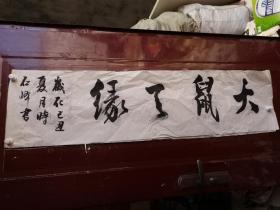 大鼠了緣
歲在己丑
夏月時
石峰書